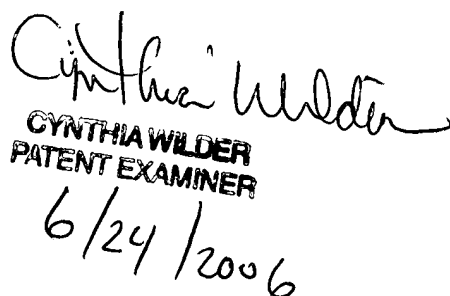 Cynthia Wilder
CYNTHIA WILDER
PATENT EXAMINER
6/24/2006